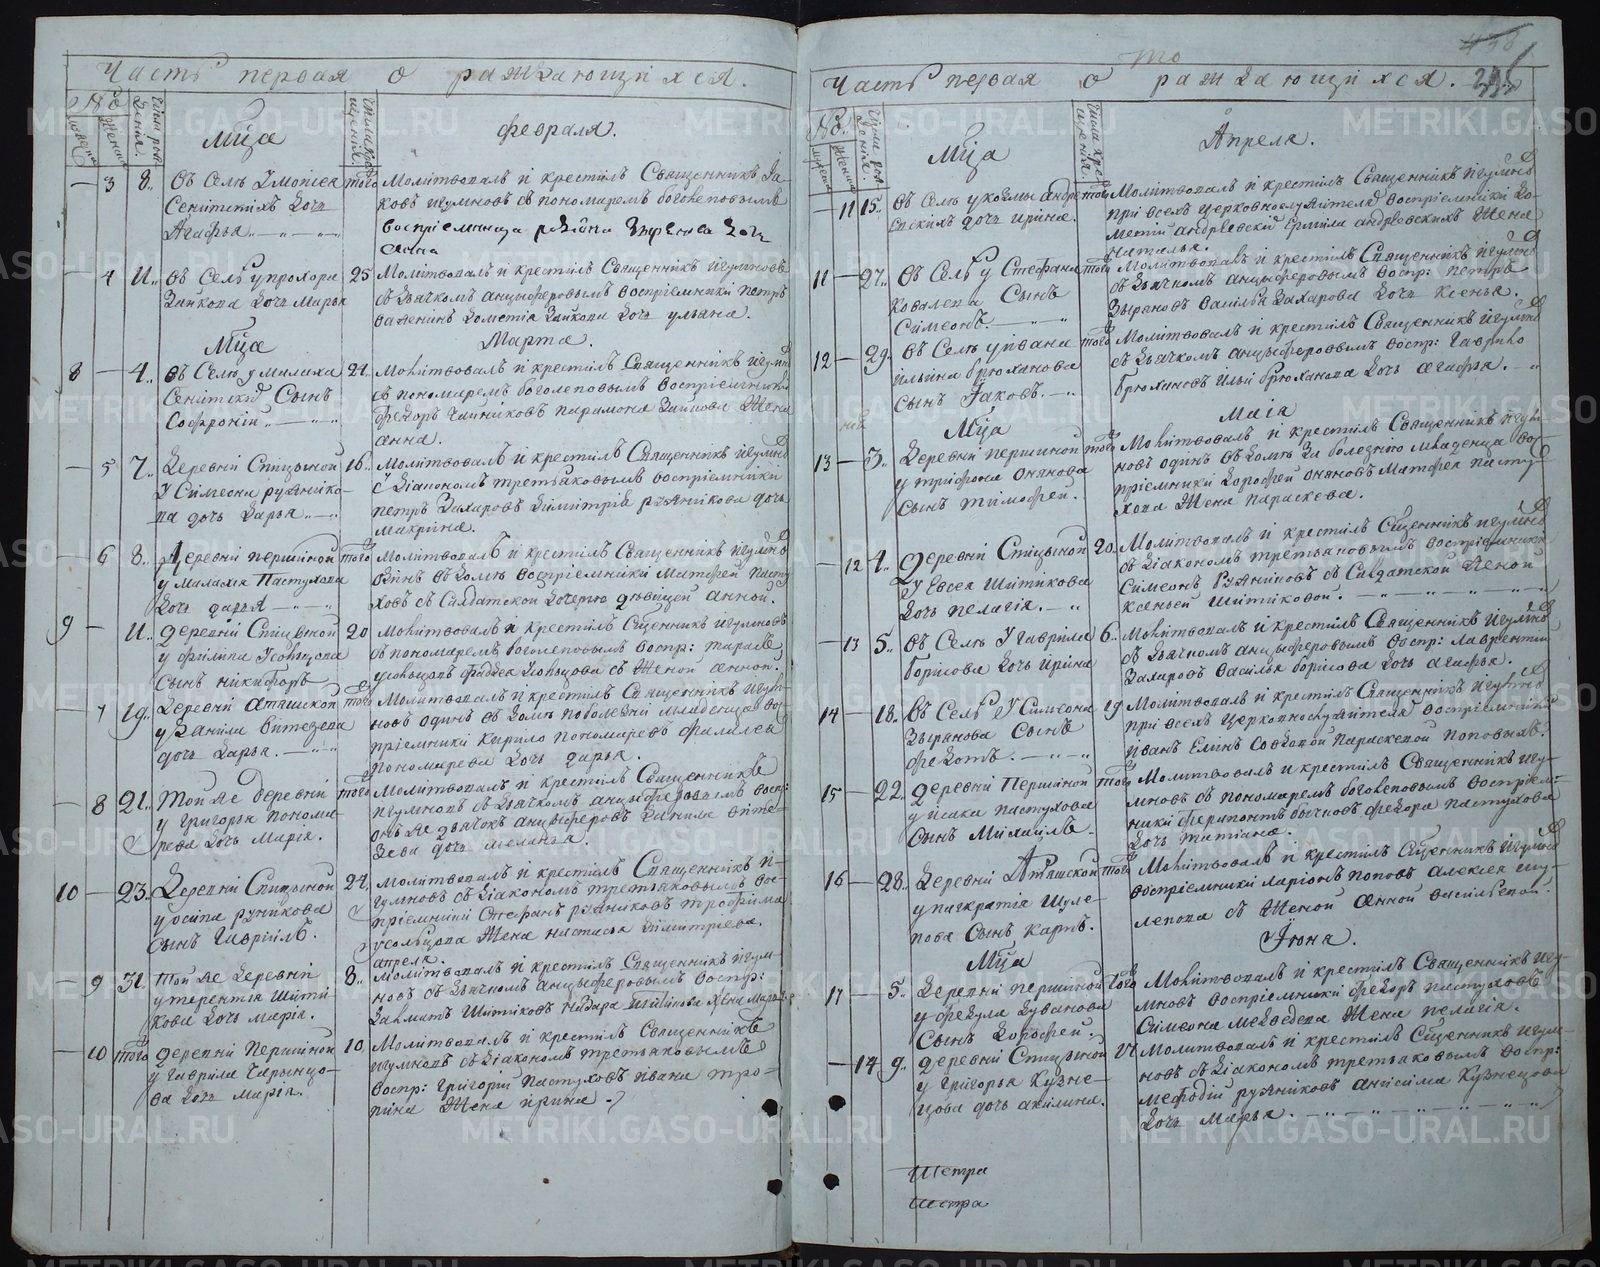 Часть первая о раждающихся.
№ Числа рождения. Числа крещения.
Мца февраля.
3 8. Въ Селѣ
Сенитскихъ дочь
Агафья
того Молитвовалъ и крестилъ Священникъ Іа-
ковъ Игумновъ съ пономаремъ боголеповымъ
воспріемница дочь
Анна
4 И. Въ Селѣ у прохора
Зайкова дочь Марья
25 Молитвовалъ и крестилъ Священникъ Игумновъ
съ дьячкомъ анцыферовымъ воспріемники петръ
Зайкова дочь ульяна.
Мца Марта.
8 4. въ Селѣ у малаха
Сенитскаго Сынъ
Софроній
24. Молитвовалъ и крестилъ Священникъ Игумновъ
съ пономаремъ боголеповымъ воспріемники
федоръ Чайниковъ парамона Зайкова Жена
анна.
5 7. Деревни Спицыной
у Симеона рудникова
дочь дарья
16. Молитвовалъ и крестилъ Священникъ Игумновъ
съ діакономъ третьяковымъ воспріемники
петръ Захаровъ димитрія рудникова дочь
макрина.
6 8. Деревни першиной
у Малахія Пастухова
дочь дарья
того Молитвовалъ и крестилъ Священникъ Игумновъ
одинъ въ домѣ воспріемники Матфей пасту-
ховъ съ Салдатской дочерью девицей анной.
9 И. деревни Спицыной
у филипа Усольцова
Сынъ никифоръ
20 Молитвовалъ и крестилъ Сщенникъ Игумновъ
съ пономаремъ боголеповымъ воспр: тарасъ
усольцовъ фадея Усольцова съ Женой анной.
7 19. Деревни аташской
у данила Витезева
дочь дарья.
того Молитвовалъ и крестилъ Священникъ Игум-
новъ одинъ въ домѣ по болезни младенца вос-
пріемники Кирило пономаревъ фалалея
пономарева дочь дарья.
8 21. Той же деревни
у Григорья понома-
рева дочь Марія.
того Молитвовалъ и крестилъ Священникъ
игумновъ съ дьячкомъ анцыферовымъ воспр:
онъ же дьячокъ анцыферовъ данила Вите-
зева дочь меланья.
10 23. Деревни Спицыной
у осипа рудникова
сынъ Гавріилъ.
24. Молитвовалъ и крестилъ Священникъ И-
гумновъ съ діакономъ третьяковымъ вос-
пріемники Стефанъ рудниковъ трофима
усольцова Жена настасья димитріева.
9 31. Той же деревни
у терентья Шити-
кова дочь марія.
апреля.
8. Молитвовалъ и крестилъ Священникъ игум-
новъ съ дьячкомъ анцыферовымъ воспр:
Шитиковъ Шитикова Жена Марья
10 того деревни Першиной
у Гаврила Чарынцо-
ва дочь марія.
10 Молитвовалъ и крестилъ Священникъ
игумновъ съ діакономъ третьяковымъ
воспр: григорій пастуховъ ивана тро-
пина Жена ирина.
Часть первая о раждающихся.
№ Числа рождения. Числа крещения.
Мца Апреля.
11 15. Въ Селѣ у козмы андре-
евскихъ дочь ирина.
того Молитвовалъ и крестилъ Священникъ игумновъ
при всехъ церковнослужителяхъ воспріемники до-
метій андреевскій Ермила андреевскихъ Жена
наталья.
11 27. Въ Селѣ у Стефана
Ковалева Сынъ
Симеонъ.
того Молитвовалъ и крестилъ Священникъ Игумновъ
съ дьячкомъ анцыферовымъ воспр: петръ
Зыряновъ василья Захарова дочь Ксенья.
12 29. Въ Селѣ у ивана
ильина брюханова
Сынъ Іаковъ.
того Молитвовалъ и крестилъ Священникъ Игумновъ
съ дьячкомъ анцыферовымъ воспр: Гаврило
брюхановъ Ильи брюханова дочь агафья.
Мца Маія
13 3. Деревни першиной
у трифона онянова
Сынъ тимофей.
того Молитвовалъ и крестилъ Священникъ Игум-
новъ одинъ въ домѣ за болезнію младенца вос-
пріемники дорофей оняновъ Матфея пасту-
хова Жена параскева.
12 4. деревни Спицыной
у Евсея Шитикова
дочь пелагія.
20. Молитвовалъ и крестилъ Сщенникъ игумновъ
съ діакономъ третьяковымъ воспріемники
Симеонъ рудниковъ съ Салдатской Женой
Ксеньей Шитиковой.
13 5. Въ Селѣ у Гаврила
борисова дочь ирина
6. Молитвовалъ и крестилъ Священникъ Игумновъ
съ дьячкомъ анцыферовымъ воспр: лаврентій
Захаровъ василья борисова дочь агафья.
14 18. Въ Селѣ у Симеона
Зырянова Сынъ
федотъ.
19 Молитвовалъ и крестилъ Священникъ Игумновъ
при всехъ церковнослужителяхъ воспріемники
иванъ Елинъ со вдовой Параскевой поповыхъ.
15 22. деревни Першиной
у исака пастухова
Сынъ Михаилъ.
того Молитвовалъ и крестилъ Священникъ игу-
мновъ съ пономаремъ боголеповымъ воспріем-
ники ферапонтъ бычковъ федора пастухова
дочь татіана.
16 28. Деревни Аташской
у панкратія Шуле-
пова Сынъ Карпъ.
того Молитвовалъ и крестилъ Сщенникъ Игумновъ
воспріемники ларіонъ поповъ алексея шу-
лепова съ Женой анной васильевой.
Мца Іюня.
17 5. Деревни першиной
у федула
Сынъ дорофей.
того Молитвовалъ и крестилъ Священникъ игу-
мновъ воспріемники федоръ пастуховъ
Симеона медведева Жена пелагія.
14 9. деревни Спицыной
у григорья Кузне-
цова дочь акилина.
Молитвовалъ и крестилъ Сщенникъ игум-
новъ съ діакономъ третьяковымъ воспр:
мефодій рудниковъ анисима Кузнецова
дочь марья.
Петра
Петра
METRIKI.GASO-URAL.RU